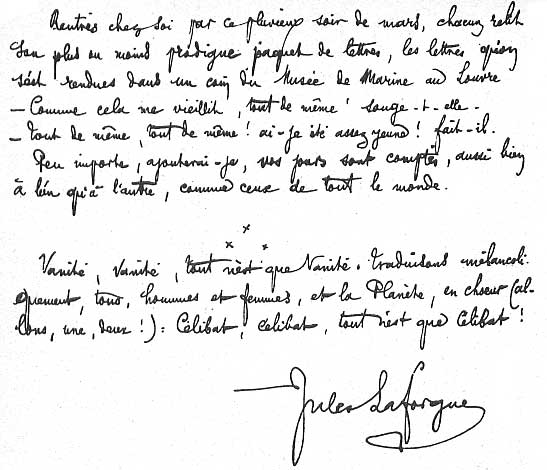 Rentrés chez soi par ce pluvieux soir de mars, chacun relit
son plus ou moins prodigue paquet de lettres, les lettres qu'on
s'est rendues dans un coin du Musée de Marine au Louvre
— Comme cela me vieillit, tout de même ! songe-t-elle.
— Tout de même, tout de même ! ai-je été assez jeune ! fait-il.
Peu importe, ajouterai-je, vos jours sont comptés, aussi bien
à l'un qu'à l'autre, comme ceux de tout le monde.
x
x x
Vanité, Vanité, tout n'est que Vanité. Traduisons mélancoli
quement, tous, hommes et femmes, et la Planète, en chœur (al-
lons, une, deux !) : Célibat, célibat, tout n'est que Célibat !
Jules Laforgue